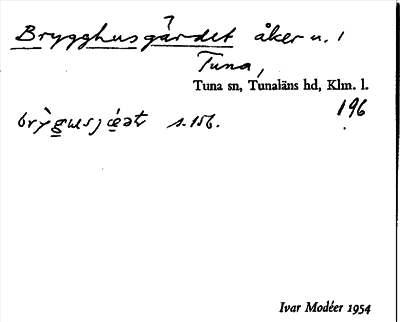 Brygghusgärdet åker u. 1
Tuna,
Tuna sn, Tunaläns hd, Klm. l.
196
s. 156.
Ivar Modéer 1954